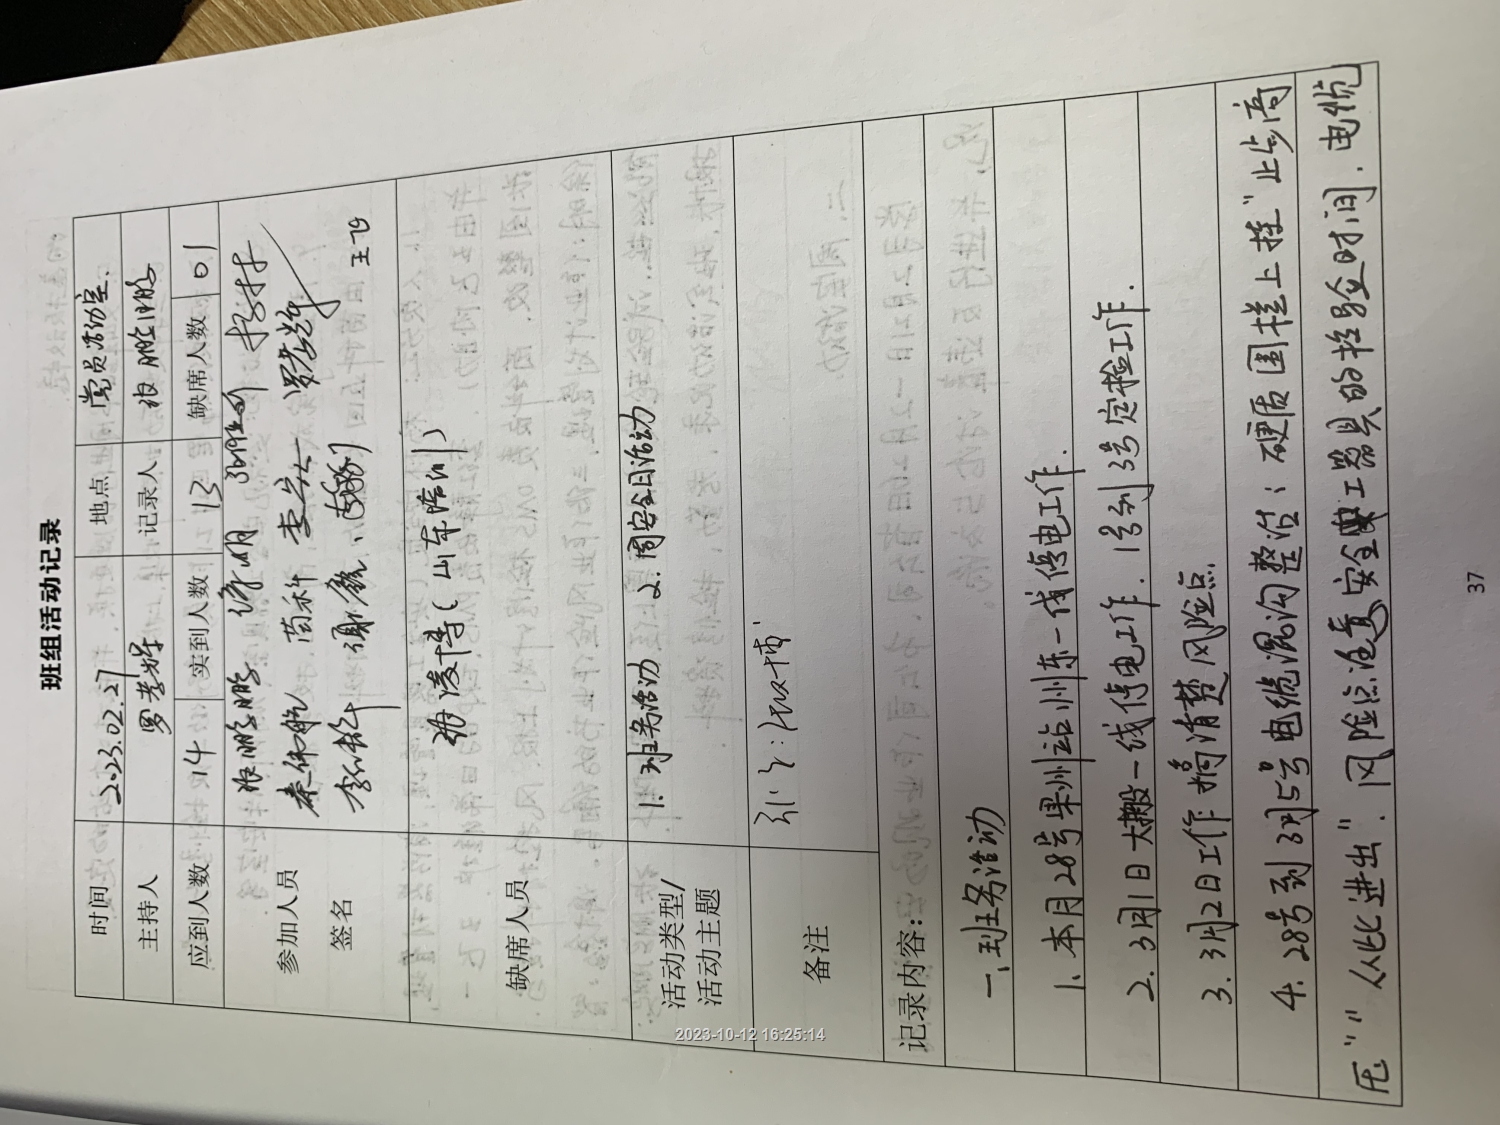 班组活动记录
时间 2023.02.27 地点 党员活动室.
主持人 罗孝辉 记录人 张鹏鹏
应到人数 14 实到人数 13 缺席人数 01
参加人员
签名
张鹏鹏
秦伟航 苗科
谢鑫 王飞
缺席人员 (山东培训)
活动类型/
活动主题
1.班务活动 2.周安全日活动
备注
记录内容:
一、班务活动
1. 本月28号果州站州东一线停电工作.
2. 3月1日大搬一线停电工作. 1号到3号定检工作.
3. 3月2日工作搞清楚风险点.
4. 28号到3月5号电缆混沟整治: 硬质围栏上挂"止步高
压""从此进出". 风险点注意安全工器具的检验时间. 电缆
37
2023-10-12 16:25:14